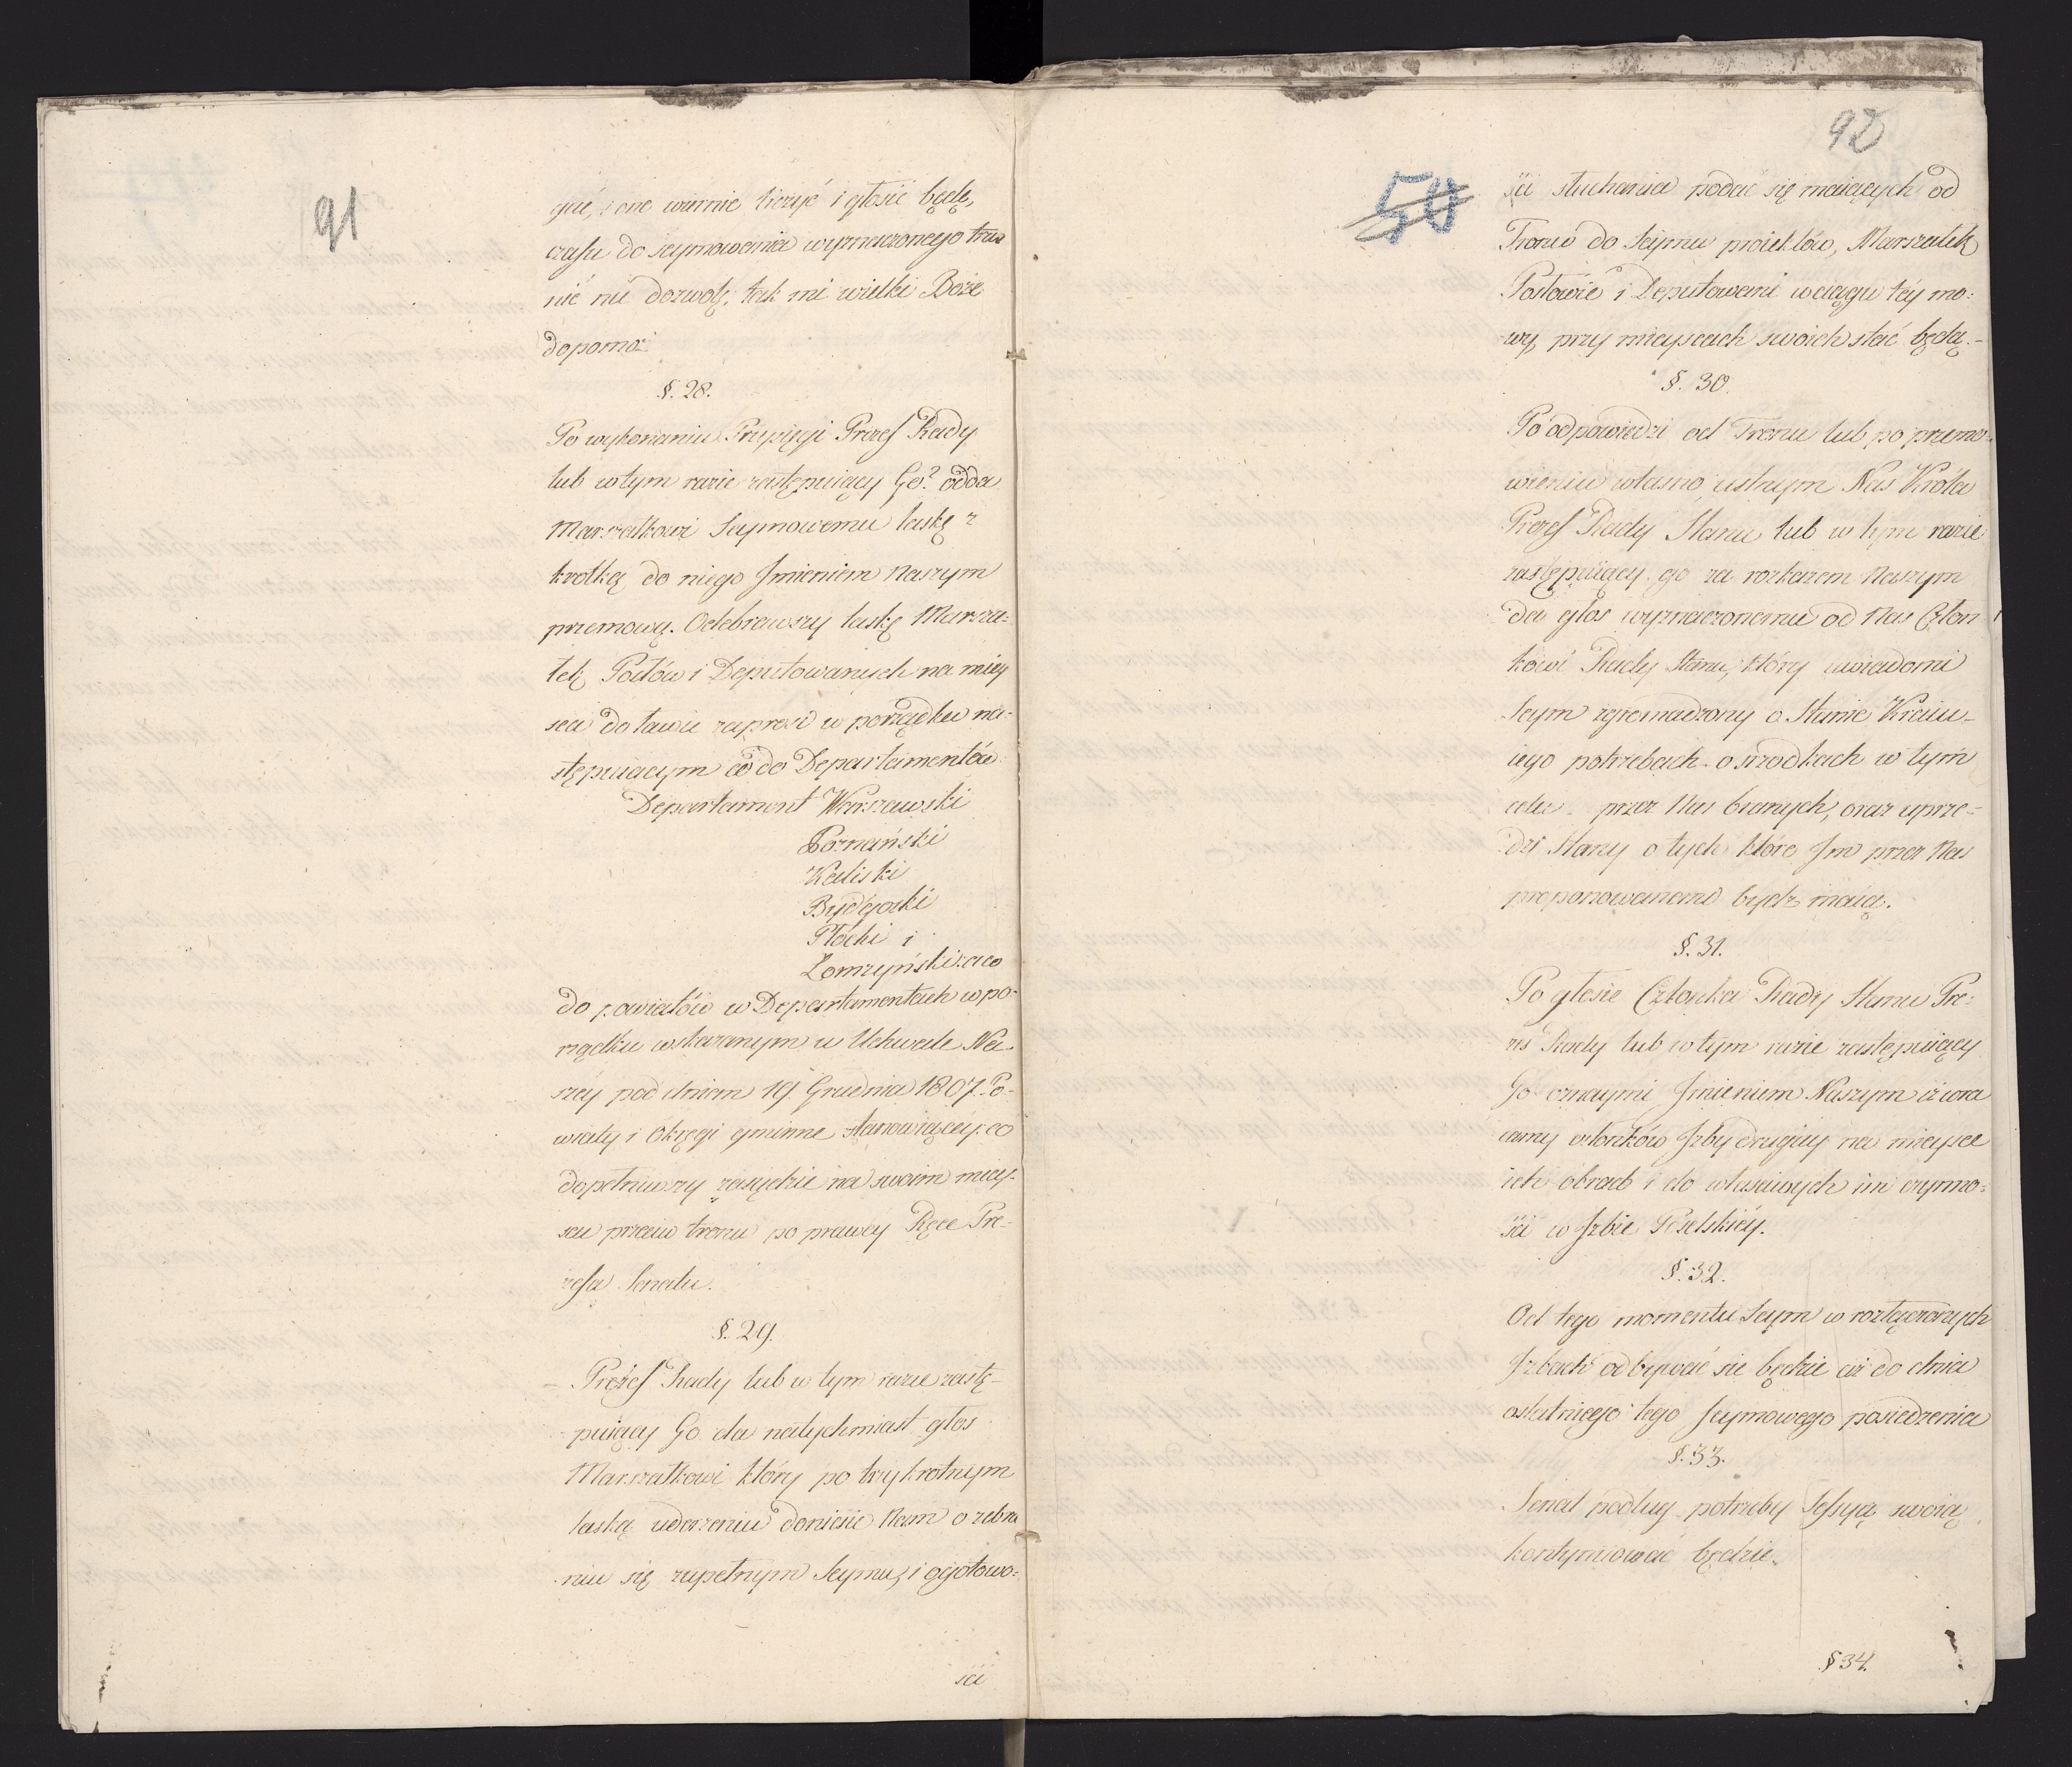 91
gać, i one wiernie liczyć i głosić będę,
czasu do seymowania wyznaczonego trwo
nić nie dozwolę; tak mi wielki Boże
dopomoż
§. 28.
Po wykonaniu Przysięgi Prezes Rady
lub w tym razie zastępuiący Go? odda
Marszałkowi Seymowemu laskę z
krotką do niego Jmieniem Naszym
przemową. Odebrawszy laskę Marsza-
łek Posłów i Deputowanych na miey
sca do ławic zaprosi w porządku na-
stępuiącym co do Departamentów
Departament Warszawski
Poznański
Kaliski
Bydgoski
Płocki i
Łomżyński: a co
do powiatów w Departamentach w po-
rządku wskazanym w Uchwale Na-
széy pod dniem 19. Grudnia 1807. Po-
wiaty i Okręgi gminne stanowiącéy. co
dopełniwszy zasiędzie na swoim miey-
scu przeciw tronu po prawey Ręce Pre-
zesa Senatu.
§. 29.
Prezes Rady lub w tym razie zastę-
puiący Go da natychmiast głos
Marszałkowi który po trzykrotnym
laską uderzeniu doniesie Nam o zebra
niu się zupełnym Seymu, i o gotowo-
ści
92
50
ści słuchania podać się maiących od
Tronu do Seymu proiektów, Marszałek
Posłowie i Deputowani w ciągu téy mo-
wy, przy mieyscach swoich stać będą.-
§. 30.
Po odpowiedzi od Tronu lub po przemo-
wieniu własno ustnym Nas Króla
Prezes Rady Stanu lub w tym razie
zastępuiący go za rozkazem Naszym
da głos wyznaczonemu od Nas Człon
kowi Rady Stanu, który uwiadomi
Seym zgromadzony o Stanie Kraiu
iego potrzebach o srzodkach w tym
celu przez Nas branych, oraz uprze-
dzi Stany o tych które Jm przez Nas
proponowanemi bydz maią.
§. 31.
Po głosie Członka Rady Stanu Pre-
zes Rady lub w tym razie zastępuiący
Go oznaymi Jmieniem Naszym iż wra
camy członków Jzby drugiey na mieysce
ich obrad i do właściwych im czynno-
ści w Jzbie Poselskiéy.
§. 32.
Od tego momentu Seym w rozłączonych
Jzbach odbywać sie będzie aż do dnia
ostatniego tego Seymowego posiedzenia
§. 33.
Senat podług potrzeby Sessyą swoią
kontynuować będzie.
§ 34.